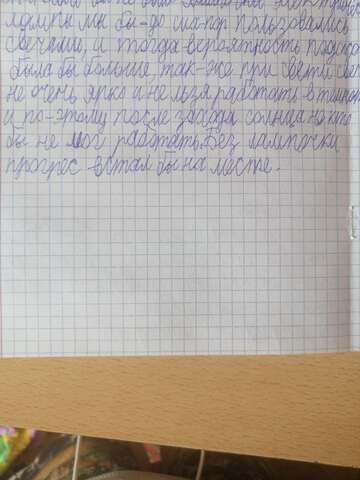 лампы мы бы-до сих-пор пользовались
свечами, и тогда вероятность пожара
была бы больше, так-же при свети све
не очень ярко и нельзя работать в темно
и по-этому после захода солнца никто
бы не мог работать. Без лампочки
прогрес встал бы на месте.